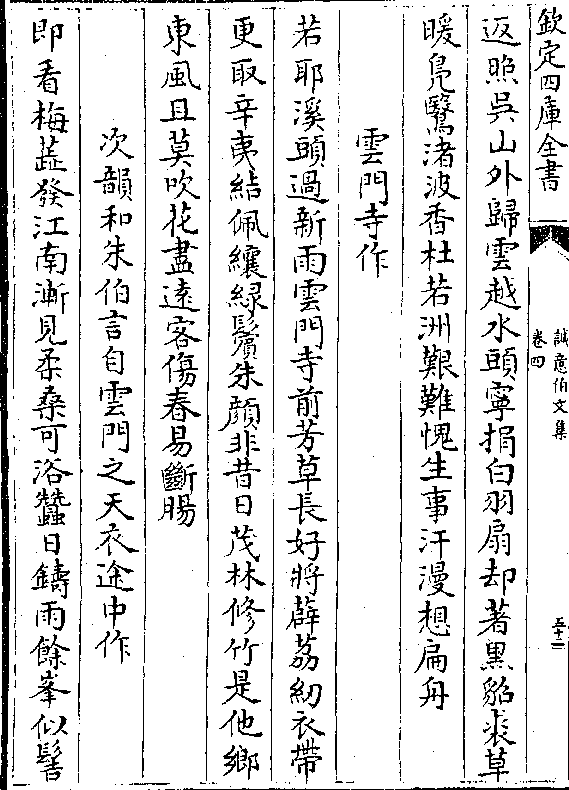 欽定四庫全書
誠意伯文集
卷四
五十二
返照吳山外歸雲越水頭寧捐白羽扇却著黒貂裘草
暖鳧鷖渚波香杜若洲艱難愧生事汗漫想扁舟
雲門寺作
若耶溪頭過新雨雲門寺前芳草長好將薜荔紉衣帶
更取辛夷結佩纕緑鬢朱顔非昔日茂林修竹是他鄉
東風且莫吹花盡逺客傷春易斷腸
次韻和朱伯言自雲門之天衣途中作
即看梅蘂發江南漸見柔桑可浴蠶日鑄雨餘峯似髻